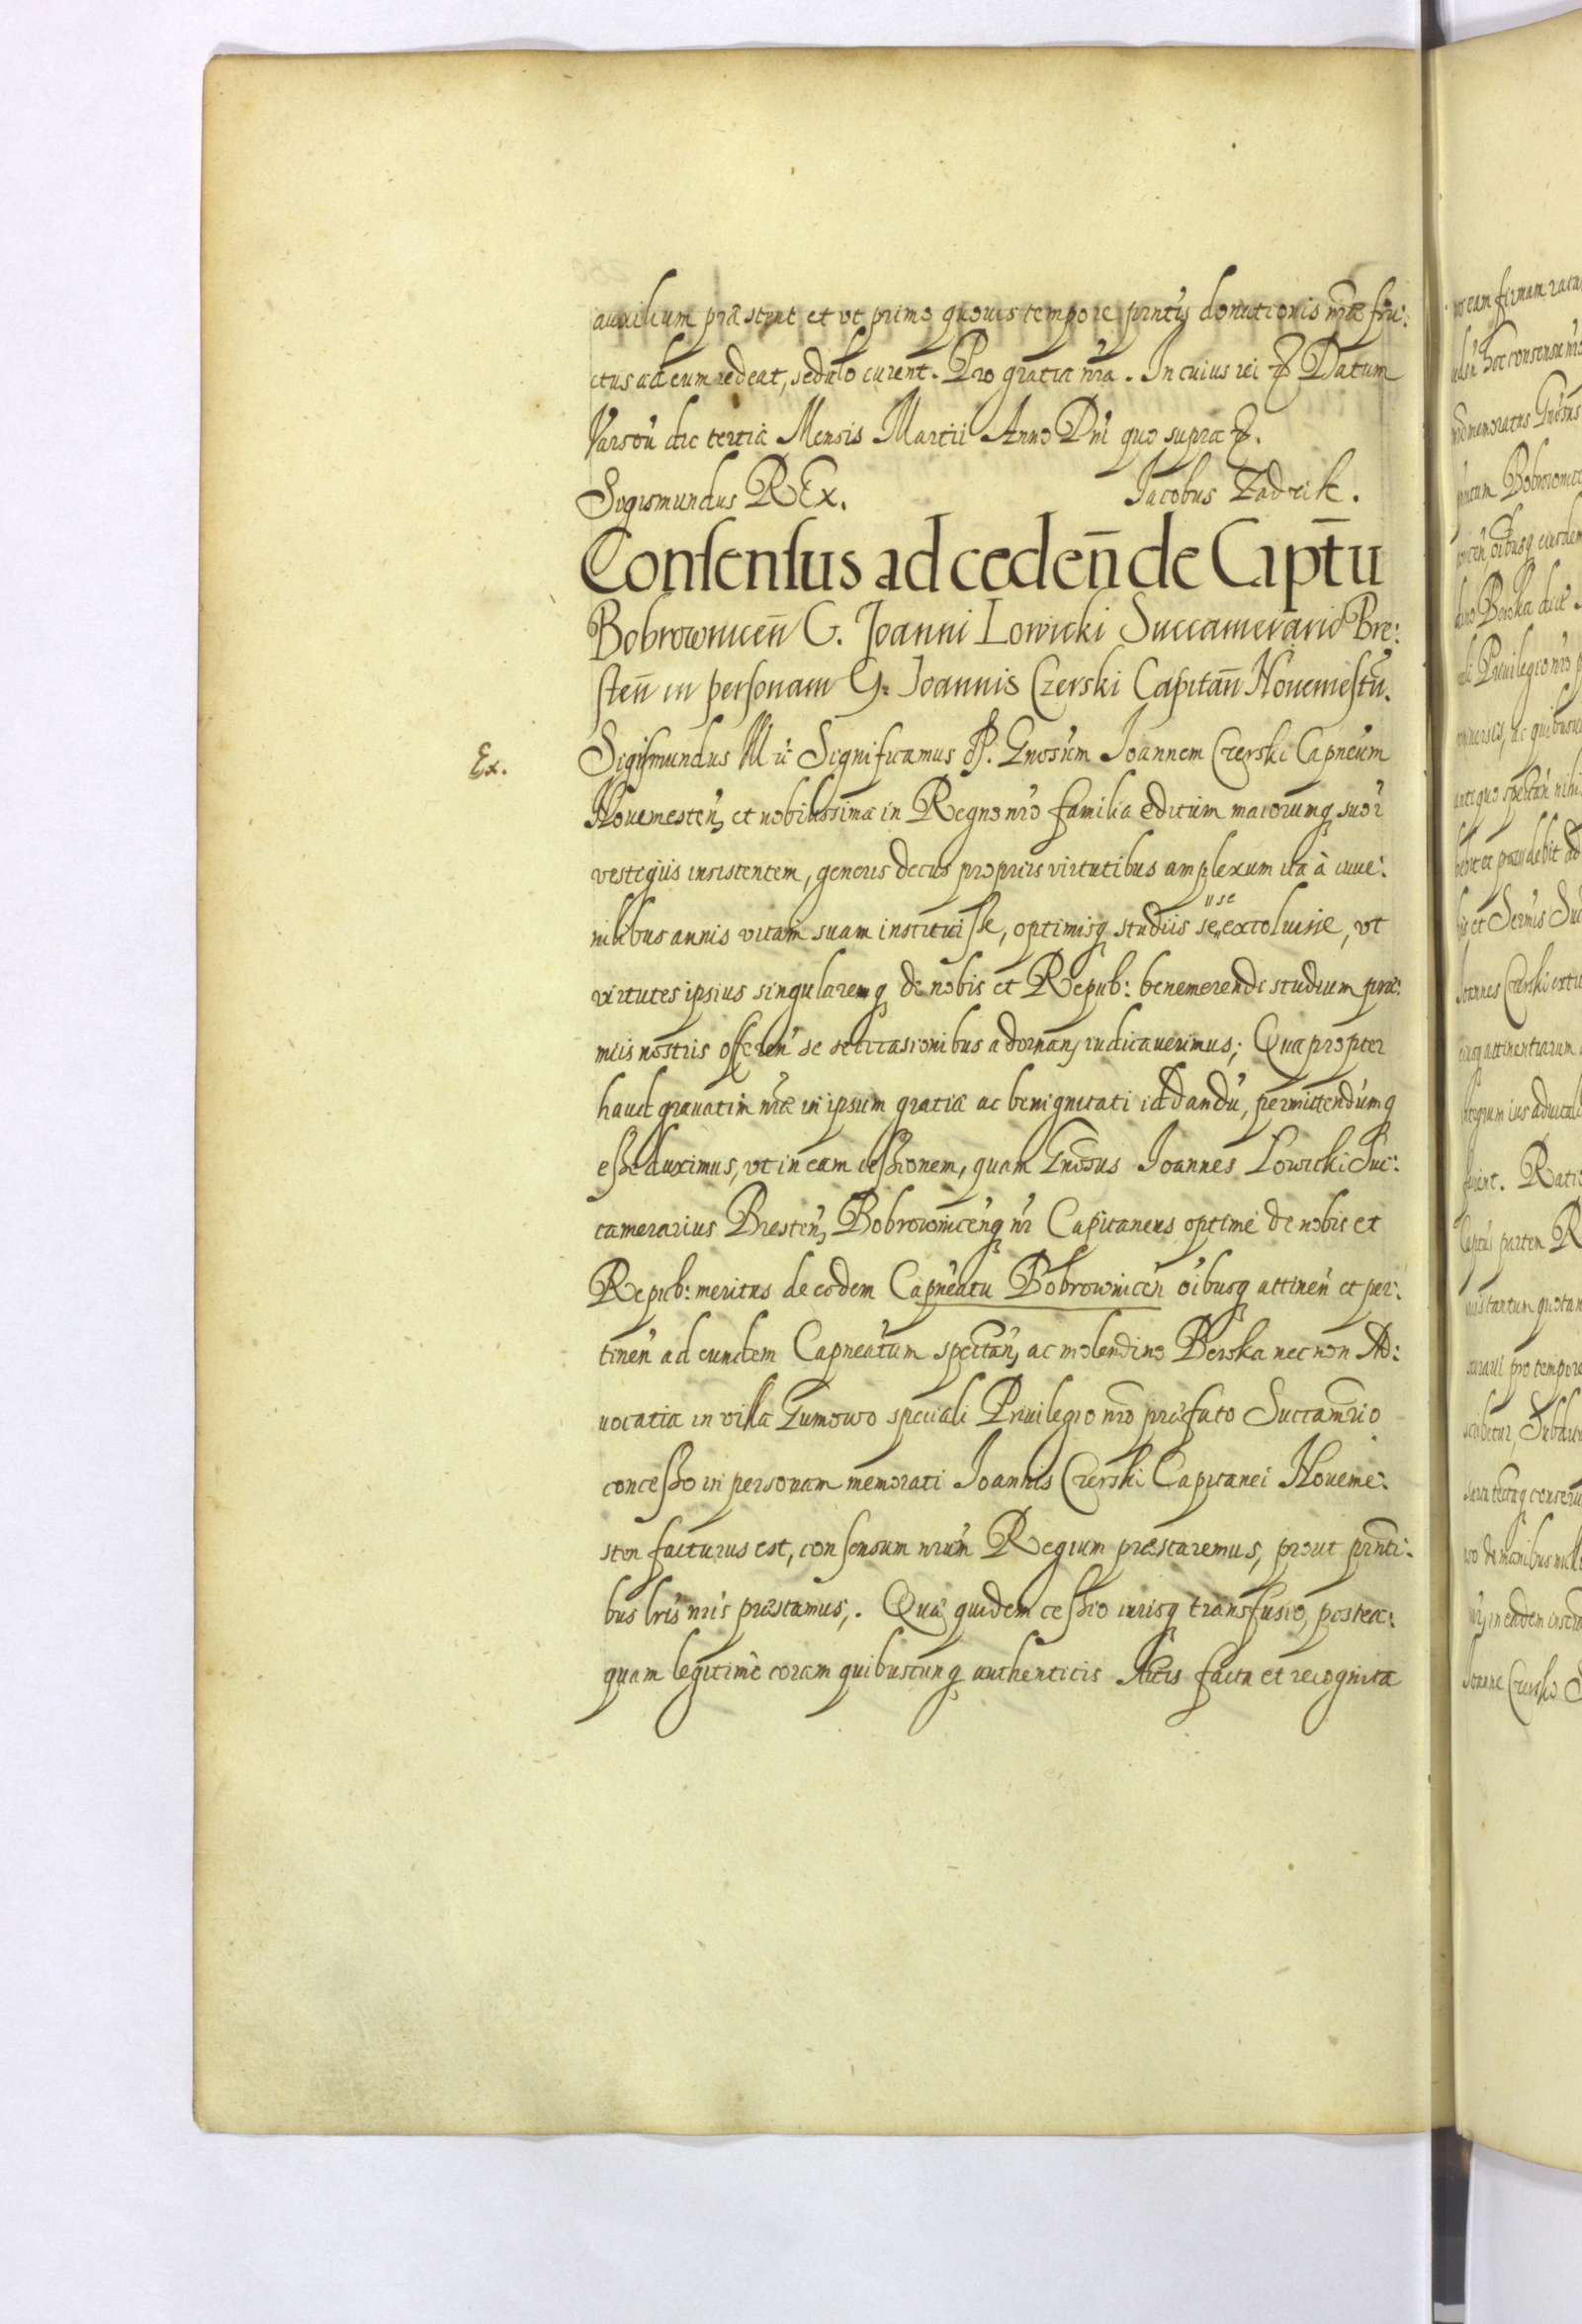 auxilium præstent et vt primo quouis tempore pntis donationis nræ fru:
ctus ad eum redeat, sedulo curent. Pro gratia nra. In cuius rei &. Datum
Varsou die tertia Mensis Martii Anno Dni quo supra &.
Sigismundus REx. Jacobus Zadzik.
Consensus ad ceden̄ de Captū
Bobrownicen̄ G. Joanni Lowicki Succamerario Bre:
sten̄ in personam G. Joannis Czerski Capitan̄ Nouemestn̄.
Ex.
Sigismundus III &c Significamus &. Gnosum Joannem Czerski Capneum
Nouemesten, et nobilissima in Regno nro familia editum maiorumq suor
vestigiis insistentem, generis decus propriis virtutibus amplexum ita à iuue:
nilibus annis vitam suam instituisse, optimisq studiis se excoluisse, vt
virtutes ipsius singularemq de nobis et Repub: benemerendi studium præ:
miis nostris offeren se se occasionibus adornan, iudicauerimus; Quapropter
haud grauatim nræ in ipsum gratiæ ac benignitati id dandū, permittendumq
esse duximus, vt in eam cessionem, quam Gnosus Joannes Lowicki Suc:
camerarius Bresten, Bobrownicenq nr Capitaneus optimè de nobis et
Repub: meritus de eodem Capneatu Bobrownicen oibusq attinen et per:
tinen ad eundem Capneatum spectan, ac molendino Berska necnon Ad:
uocatia in villa Gumowo speciali Priuilegio nro præfato Succamrio
concesso in personam memorati Joannis Czerski Capitanei Noueme:
sten facturus est, consensum nrum Regium præstaremus, prout pnti:
bus lris nris præstamus,. Quæ quidem cessio iurisq transfusio, postea:
quam legitimè coram quibuscunq authenticis Actis facta et recognita